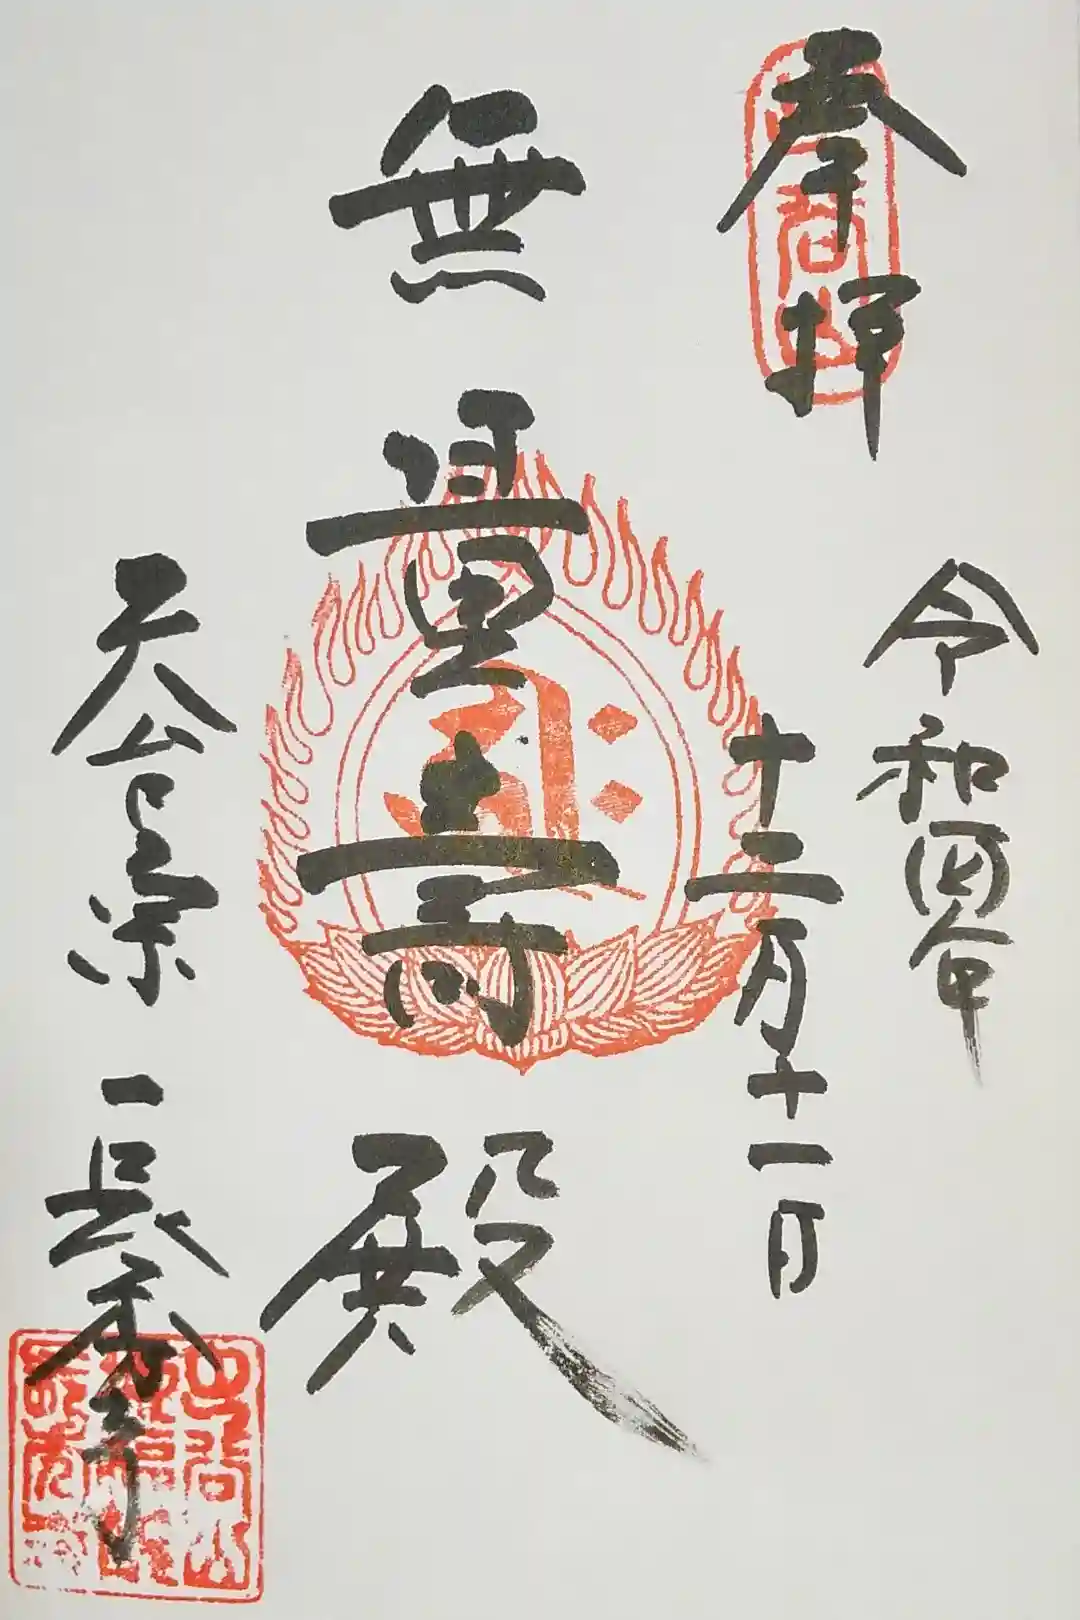 奉拝
令和四年
十二月十一日
無量寿殿
天台宗 長壽寺